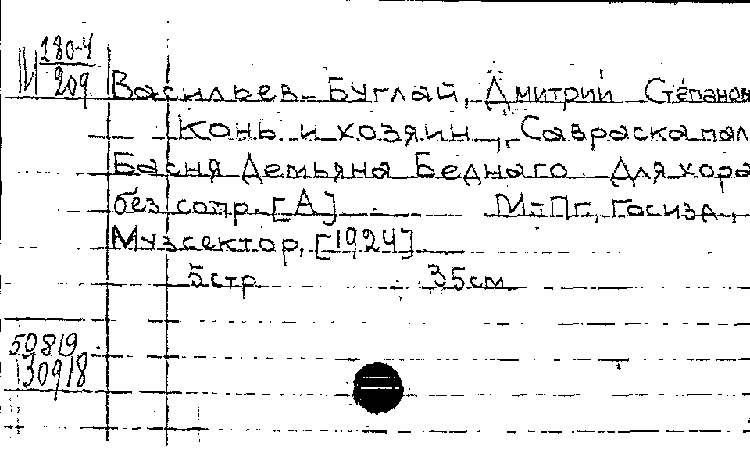 М 180-4
209
Васильев-Буглай, Дмитрий Степанов
Конь и хозяин, Савраска пал
Басня Демьяна Бедного Для хора
без сопр. [А] М-Пг, Госизд.,
Музсектор, [1924]
5 стр 35 см
50819
130918